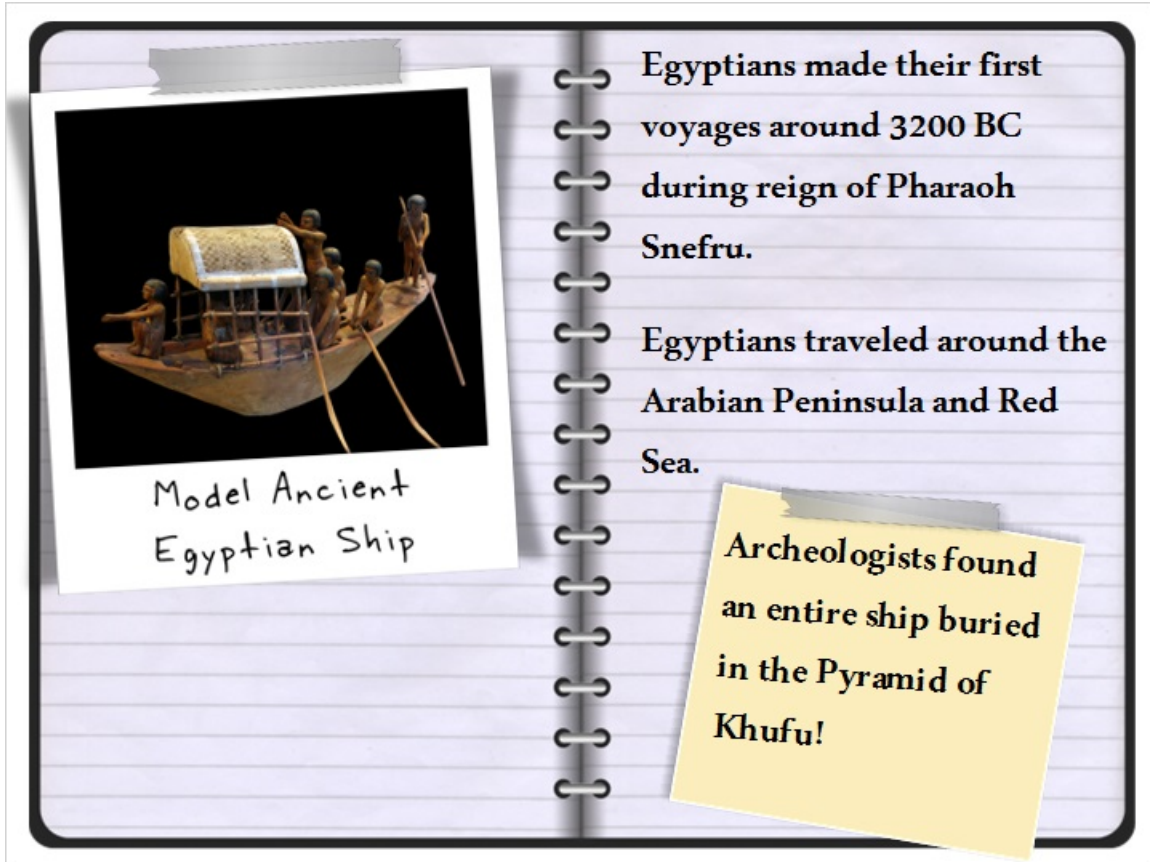 Model Ancient
Egyptian Ship
Egyptians made their first
voyages around 3200 BC
during reign of Pharaoh
Snefru.
Egyptians traveled around the
Arabian Peninsula and Red
Sea.
Archeologists found
an entire ship buried
in the Pyramid of
Khufu!